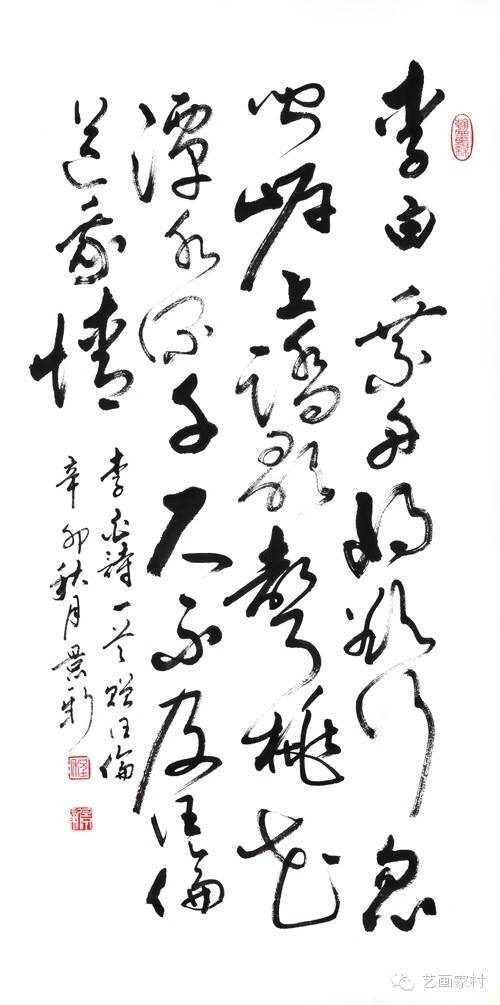 李白乘舟將欲行忽
聞岸上踏歌聲桃花
潭水深千尺不及汪倫
送我情
李白詩一首贈汪倫
辛卯秋月景新
艺画家村